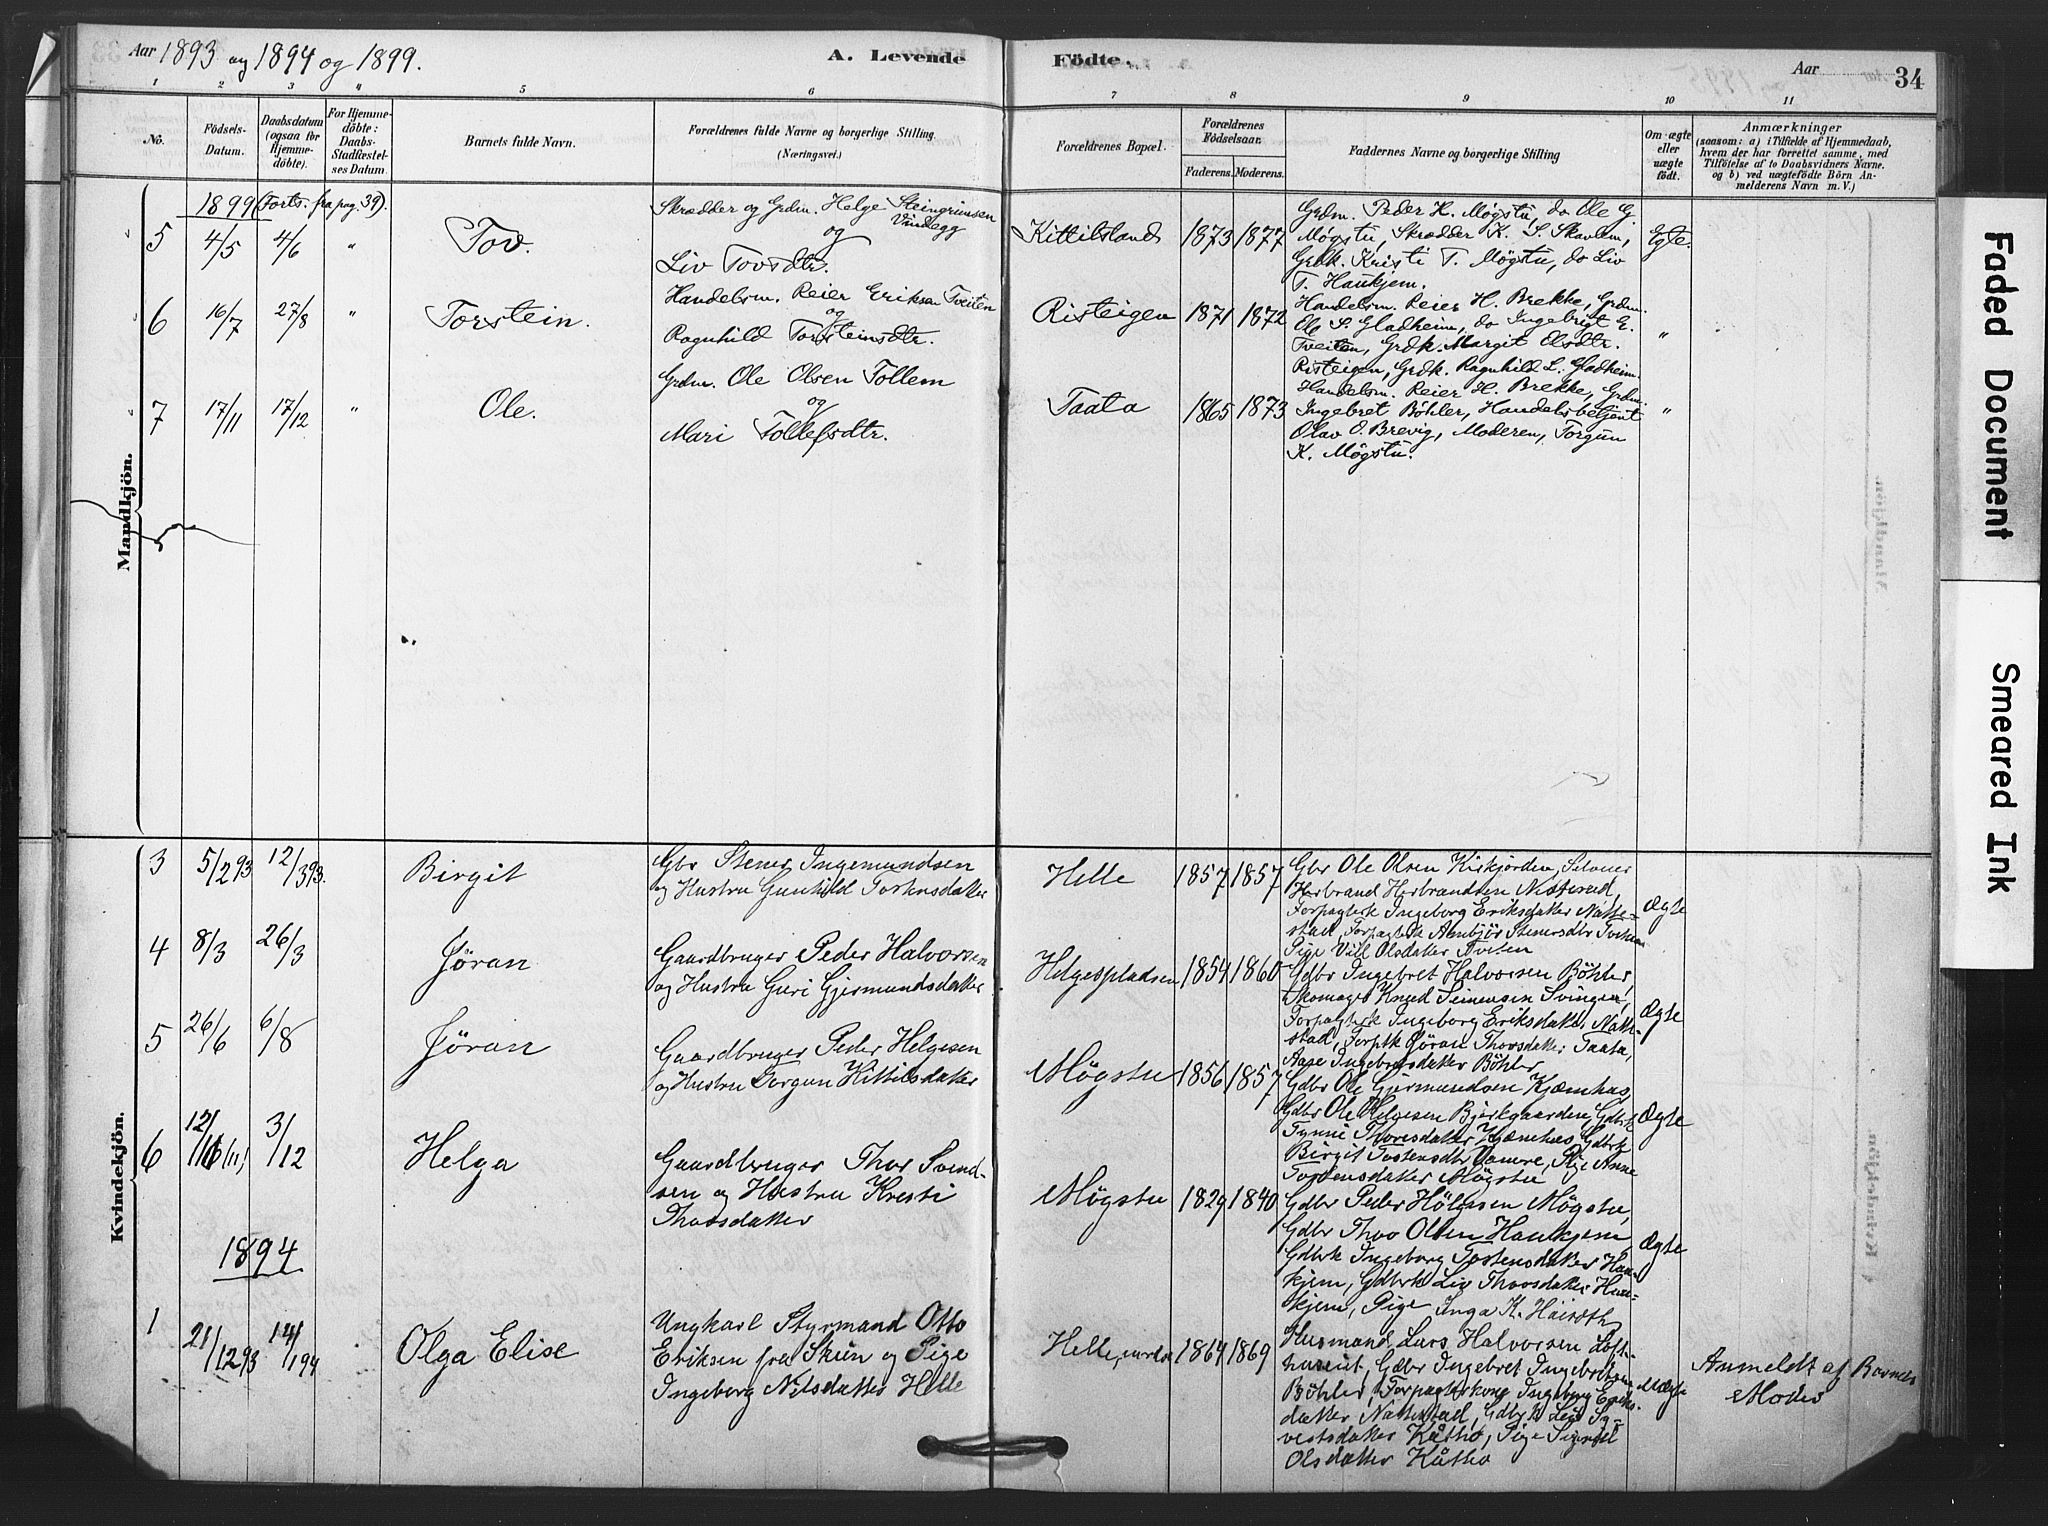 Aar 1893 og 1894 og 1899.
A. Levende
Födte.
Aar
34
1 2 3 " 5 6 7 8 9 10 11
No.
Födsels-
Datum.
Daabsdatum
(ogsaa för
Hjemme-
döbte).
For Hjemme-
döbte:
Daabs-
Stadfæstel-
ses Datum.
Barnets fulde Navn.
Forældrenes fulde Navne og borgerlige Stilling.
(Næringsvei.)
Forældrenes Bopæl.
Forældrenes
Födselsaar.
Faderens. Moderens.
Faddernes Navne og borgerlige Stilling
Om ægte
eller
uægte
födt.
Anmærkninger
(saasom: a) i Tilfælde af Hjemmedaab,
hvem der har forrettet samme, med
Tilföielse af to Daabsvidners Navne.
og b) ved uægtefödte Börn An-
melderens Navn m. V.)
Mandkjön.
1899 (Forts. fra pag. 39).
5 4/5 4/6 " Tov.
Skrædder og Grdm. Helge Steingrimsen
Vindegg
og
Liv Tovsdtr.
Kittilsland 1873 1877
Grdm. Peder H. Møgstu, do Ole G.
Møgstu, Skrædder K. S. Skavlem,
Grdk. Kristi T. Møgstu, do Liv
T. Haukjem.
Egte.
6 16/7 27/8 " Torstein.
Handelsm. Reier Eriksen Tveiten
og
Ragnhild Torsteinsdtr.
Risteigen 1871 1872
Handelsm. Reier H. Brekke, Grdm.
Ole S. Gladheim, do Ingebrigt E.
Tveiten, Grdk. Margit Olsdtr.
Risteigen, Grdk. Ragnhild L. Gladheim.
"
7 17/11 17/12 " Ole.
Grdm. Ole Olsen Tollem
og
Mari Tollefsdtr.
Taata 1865 1873
Handelsm. Reier H. Brekke, Grdm.
Ingebret Bøhler, Handelsbetjent
Olav O. Brevig, Moderen, Torgun
K. Møgstu.
"
Kvindekjön.
3 5/2 93 12/3 93. Birgit
Gbr Stener Ingemundsen
og Hustru Gunhild Torkersdatter
Helle 1857 1857
Gbr Ole Olsen Kirkjorden, Selveier
Herbrand Herbrandsen Næserud,
Forpagterk Ingeborg Eriksdatter Natte-
stad, Forpagterk Stenersdtr
Pige Olsdatter Tveten
Ægte
4 8/3 26/3 Jöran
Gaardbruger Peder Halvorsen
og Hustru Guri Gjermundsdatter
Helgespladsen 1854 1860
Gdbr Ingebret Halvorsen Böhler,
Skomager Knud Simensen Svingen,
Forpagterk Ingeborg Eriksdatter Natte-
stad, Forptk Jöran Thorsdatter Taata,
Aase Ingebretsdatter Böhler
Ægte
5 26/6 6/8 Jöran
Gaardbruger Peder Helgesen
og Hustru Torgun Kittilsdatter
Møgstu 1856 1857
Gdbr Ole Gjermundsen Kjæmhus,
Gdbr Ole Helgesen Bjerkgaarden, Gdbrk
Tynni Thorsdatter Kjæmhus, Gdbrk
Birgit Tostensdtr, Pige Anne
Torstensdatter Møgstu
Ægte
6 12/11 3/12 Helga
Gaardbruger Thor Svend-
sen og Hustru Kresti
Thorsdatter
Møgstu 1829 1840
Gdbr Peder Hölgesen Møgstu,
Gdbr Thov Olsen Haukjem
Gdbrk Ingeborg Tostensdatter Hau-
kjem, Gdbrk Liv Thovsdatter Hau-
kjem, Pige Inga K. Hairoth
Ægte
1894
1 21/12 93 14/1 94 Olga Elise
Ungkarl Styrmand Otto
Eriksen fra Skien og Pige
Ingeborg Nilsdatter Helle
Helle, nordre 1864 1869
Husmand Lars Halvorsen Loft-
huseiet, Gdbr Ingebret Ingebretsen
Böhler, Forpagterkone Ingeborg Eriks-
datter Nattestad, Gdbrk Sy-
vertsdatter Kåtho, Pige Sigrid
Olsdatter Kåtho
Uægte
Anmeldt af Barnets
Moder
Faded Document
Smeared Ink